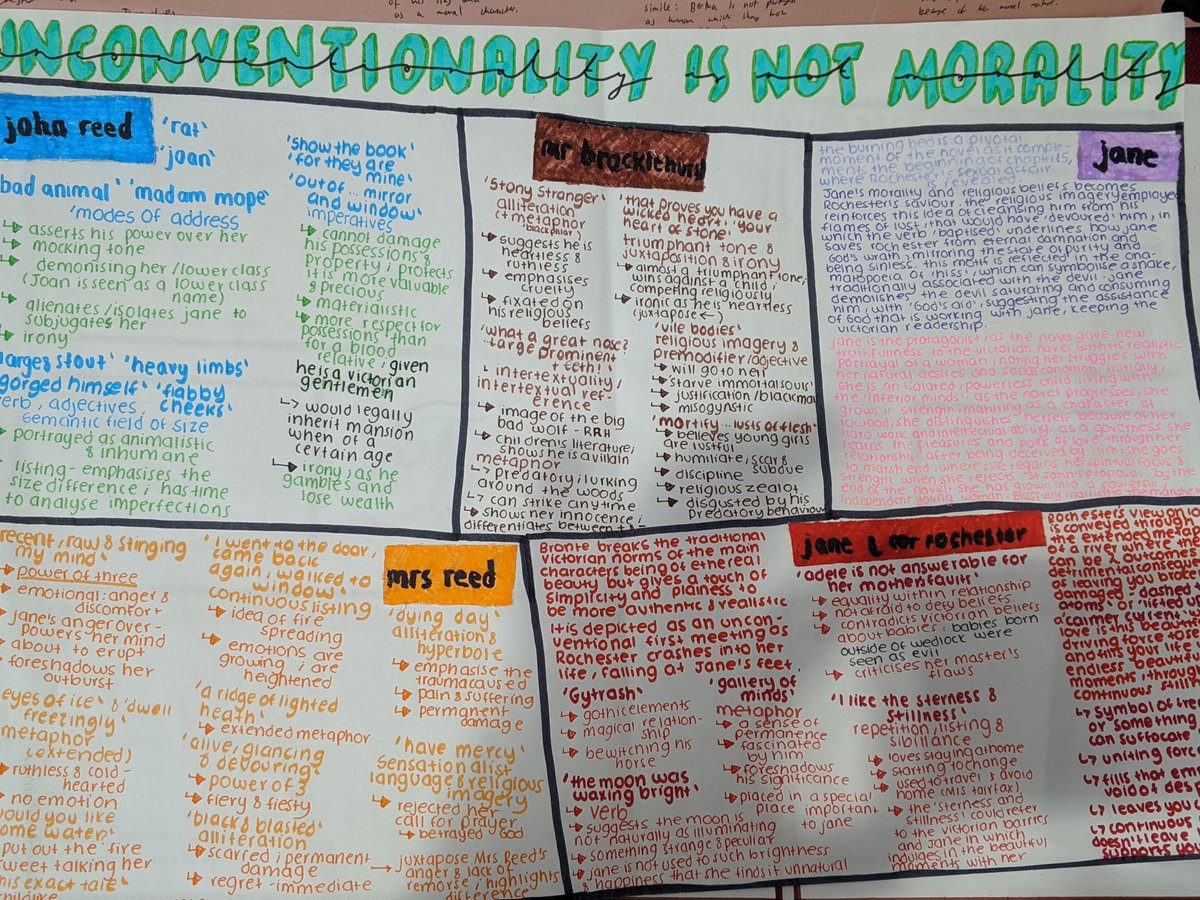 of his size with
as a moral character.
simile: Bertha is not portrayed
as human which shows how
because of her moral nature.
UNCONVENTIONALITY IS NOT MORALITY
john reed
'rat'
'joan'
bad animal' 'madam mope'
'modes of address
↳ asserts his power over her
→ mocking tone
→ demonising her/lower class
(Joan is seen as a lower class
name)
→ alienates/isolates jane to
subjugates her
→ irony
large & stout' 'heavy limbs'
gorged himself' 'flabby
cheeks'
verb, adjectives,
semantic field of size
→ portrayed as animalistic
& inhumane
listing - emphasises the
size difference; has time
to analyse imperfections
'show the book'
'for they are
mine'
'out of... mirror
and window'
imperatives
↳ cannot damage
his possessions &
property; protects
it is more valuable
& precious
→ materialistic
→ more respect for
possessions than
for a blood
relative, given
he is a victorian
gentlemein
↳ would legally
inherit mansion
when of a
certain age
→ irony; as he
gambles and
lose wealth
mr brocklehurst
'Stony Stranger'
alliteration
(+ metaphor
black pillar)
↳ suggests he is
heartless &
ruthless
→ emphasises
cruelty
→ fixated on
his religious
beliefs
'what a great nose?
... large prominent
teeth!'
↳ intertextuality/
intertextual ref-
erence
→ image of the big
bad wolf - RRH
→ childrens literature;
shows he is a villain
metaphor
↳ predatory; lurking
around the woods
↳ can strike anytime
→ shows her innocence;
differentiates between the
'that proves you have a
wicked heart', 'your
heart of stone'
triumphant tone &
juxtaposition & irony
→ almost a triumphant tone;
wins against a child;
competing religiously
→ ironic as he is heartless
(juxtapose ←)
'vile bodies'
religious imagery &
premodifier/adjective
→ will go to hell
→ 'starve immortal souls'
→ justification/blackmail
→ misogynstic
'mortify... lusts of flesh'
→ believes young girls
are lustful
→ humiliate, scar &
subdue
→ discipline
→ religious zealot
→ disgusted by his
predatory behaviour
jane
the burning bed is a pivotal
moment of the novel as it comple-
ments the beginning of chapter 15,
where Rochester's sexual affair
is revealed.
Jane's morality and religious beliefs becomes
Rochester's saviour. the religious imagery employed
reinforces this idea of cleansing him from his
flames of lust, that would have 'devoured' him, in
which the verb 'baptised' underlines how jane
saves rochester from eternal damnation and
God's wrath, mirroring the state of purity and
being sinless. this motif is reflected in the ona-
matopoeia of 'hiss', which can symbolise a snake,
traditionally associated with the devil. jane
demolishes the devil saturating and consuming
him, with 'God's aid', suggesting the assistance
of God that is working with jane, keeping the
victorian readership.
jane is the protagonist, as the novel gave new
truthfullness to the victorian novel with its realistic
portrayal of a woman, noting her struggles with
her natural desires and social condition. initially,
she is an isolated, powerless child living with
the 'inferior minds'. as the novel progresses, she
grows in strength, maturing as a character - at
lowood, she distinguishes herself because of her
hard work and intellectual ability. as a governess she
learns the pleasures and pains of love through her
relationship, after being deceived by him; she goes
to marsh end, where she regains her spiritual focus &
strength when she rejects St John's proposal. by the
end of the novel, she has grown into a powerful,
independent young woman, blissfully
mrs reed
recent, raw & stinging
my mind'
→ power of three
→ emotional: anger &
discomfort
↳ jane's anger over-
powers her mind
→ about to erupt
→ foreshadows her
outburst
eyes of ice' & 'dwell
freezingly'
metaphor
(extended)
→ ruthless & cold-
hearted
→ no emotion
would you like
some water?'
put out the fire
sweet talking her
'I went to the door,
came back
again; walked to
window'
continuous listing
→ idea of fire
spreading
→ emotions are
growing; are
heightened
'a ridge of lighted
heath'
→ extended metaphor
'alive, glancing
& devouring'
→ power of 3
→ fiery & fiesty
'black & blasted'
alliteration
→ scarred; permanent
damage
→ regret - immediate
'dying day'
alliteration &
hyperbole
→ emphasise the
trauma caused
→ pain & suffering
→ permanent
damage
'have mercy'
sensationalist
language & religious
imagery
↳ rejected her
call for prayer
→ betrayed God
→ juxtapose Mrs Reed's
anger & lack of
remorse; highlights
difference
jane & mr rochester
Bronte breaks the traditional
victorian norms of the main
characters being of ethereal
beauty but gives a touch of
simplicity and plainess to
be more authentic & realistic
It is depicted as an uncon-
ventional first meeting as
Rochester crashes into her
life, falling at Jane's feet.
'Gytrash'
→ gothic elements
→ magical relation-
ship
→ bewitching his
horse
'the moon was
waxing bright'
↳ verb
→ suggests the moon is
not naturally as illuminating
→ something strange & peculiar
→ jane is not used to such brightness
& happiness that she finds it unnatural
'gallery of
minds'
metaphor
→ a sense of
permanence
→ fascinated
by him
→ foreshadows
his significance
→ placed in a special
place important
to jane
'adele is not answerable for
her mother's faults'
→ equality within relationship
→ not afraid to defy beliefs
→ contradicts victorian beliefs
about babies; babies born
outside of wedlock were
seen as evil
→ criticises her master's
flaws
'I like the sterness &
stillness'
repetition, listing &
sibillance
→ loves staying at home
→ starting to change
→ used to travel & avoid
home (Mrs fairfax)
→ the 'sterness and
stillness' could refer
to the victorian barries
and Jane in which
indulges in the beautiful
moments with her
Rochester's view on love
is conveyed through
the extended metaphor
of a river where there
can be 2 outcomes:
detrimental consequences
leaving you broken &
damaged - 'dashed to
atoms' or 'lifted up
a calmer current'
↳ symbol of
or something
can suffocate
↳ uniting force
↳ fills that
void of
↳ leaves you
↳ continuous
doesn't leave
supports you